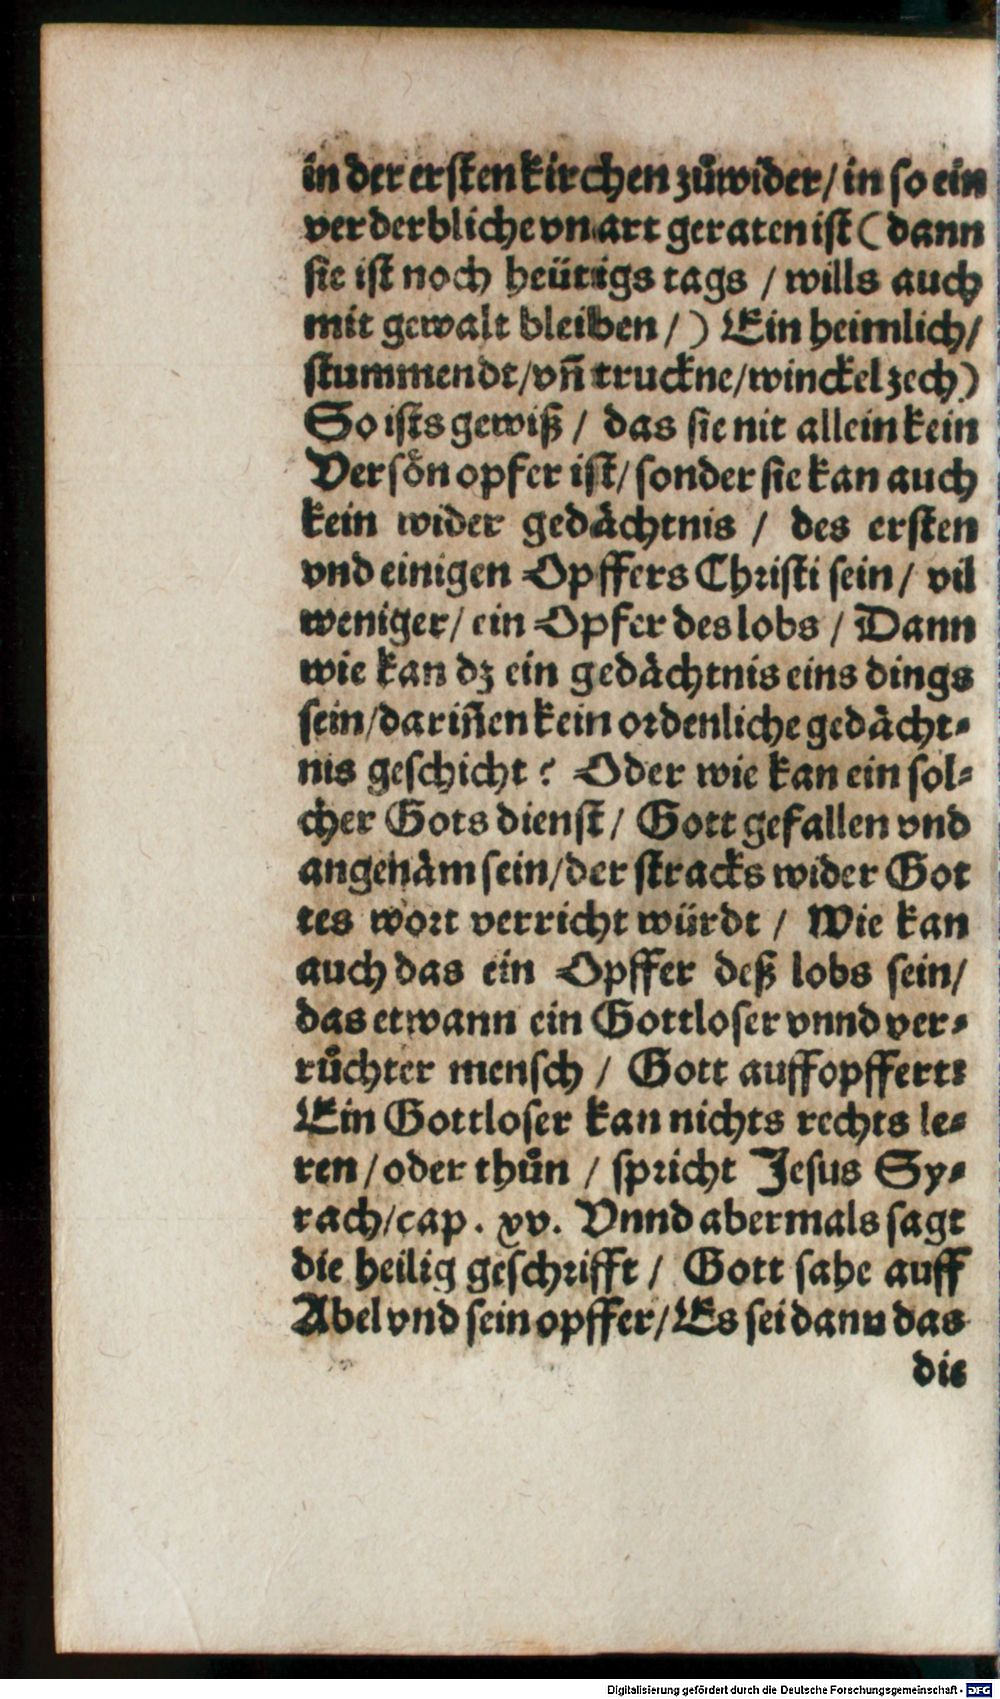 in der ersten kirchen zůwider/ in so ein
verderbliche vnart geraten ist ( dann
sie ist noch heütigs tags / wills auch
mit gewalt bleiben / ) Ein heimlich/
stummendt/vñ truckne/winckelzech)
So ists gewiß / das sie nit allein kein
Versönopfer ist/ sonder sie kan auch
kein wider gedächtnis / des ersten
vnd einigen Opffers Christi sein / vil
weniger/ ein Opfer des lobs / Dann
wie kan dz ein gedächtnis eins dings
sein/dariñen kein ordenliche gedächt⸗
nis geschicht? Oder wie kan ein sol⸗
cher Gots dienst / Gott gefallen vnd
angenäm sein/der stracks wider Got
tes wort verricht würdt / Wie kan
auch das ein Opffer deß lobs sein/
das etwann ein Gottloser vnnd ver⸗
růchter mensch / Gott auffopffert?
Ein Gottloser kan nichts rechts le⸗
ren / oder thůn / spricht Jesus Sy⸗
rach/cap. xv. Vnnd abermals sagt
die heilig geschrifft / Gott sahe auff
Abel vnd sein opffer/ Es sei dann das
die
Digitalisierung gefördert durch die Deutsche Forschungsgemeinschaft - DFG